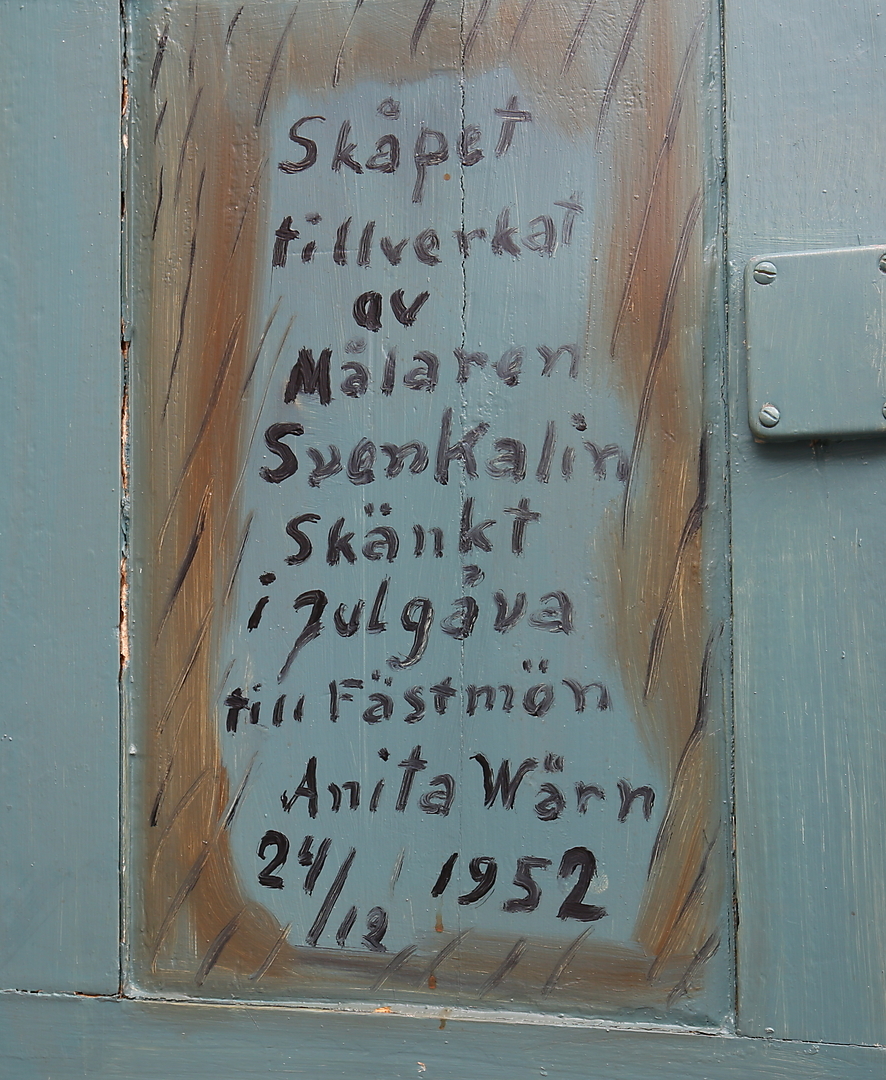 Skåpet
tillverkat
av
Målaren
Sven Kalin
Skänkt
i Julgåva
till Fästmön
Anita Wärn
24/12 1952